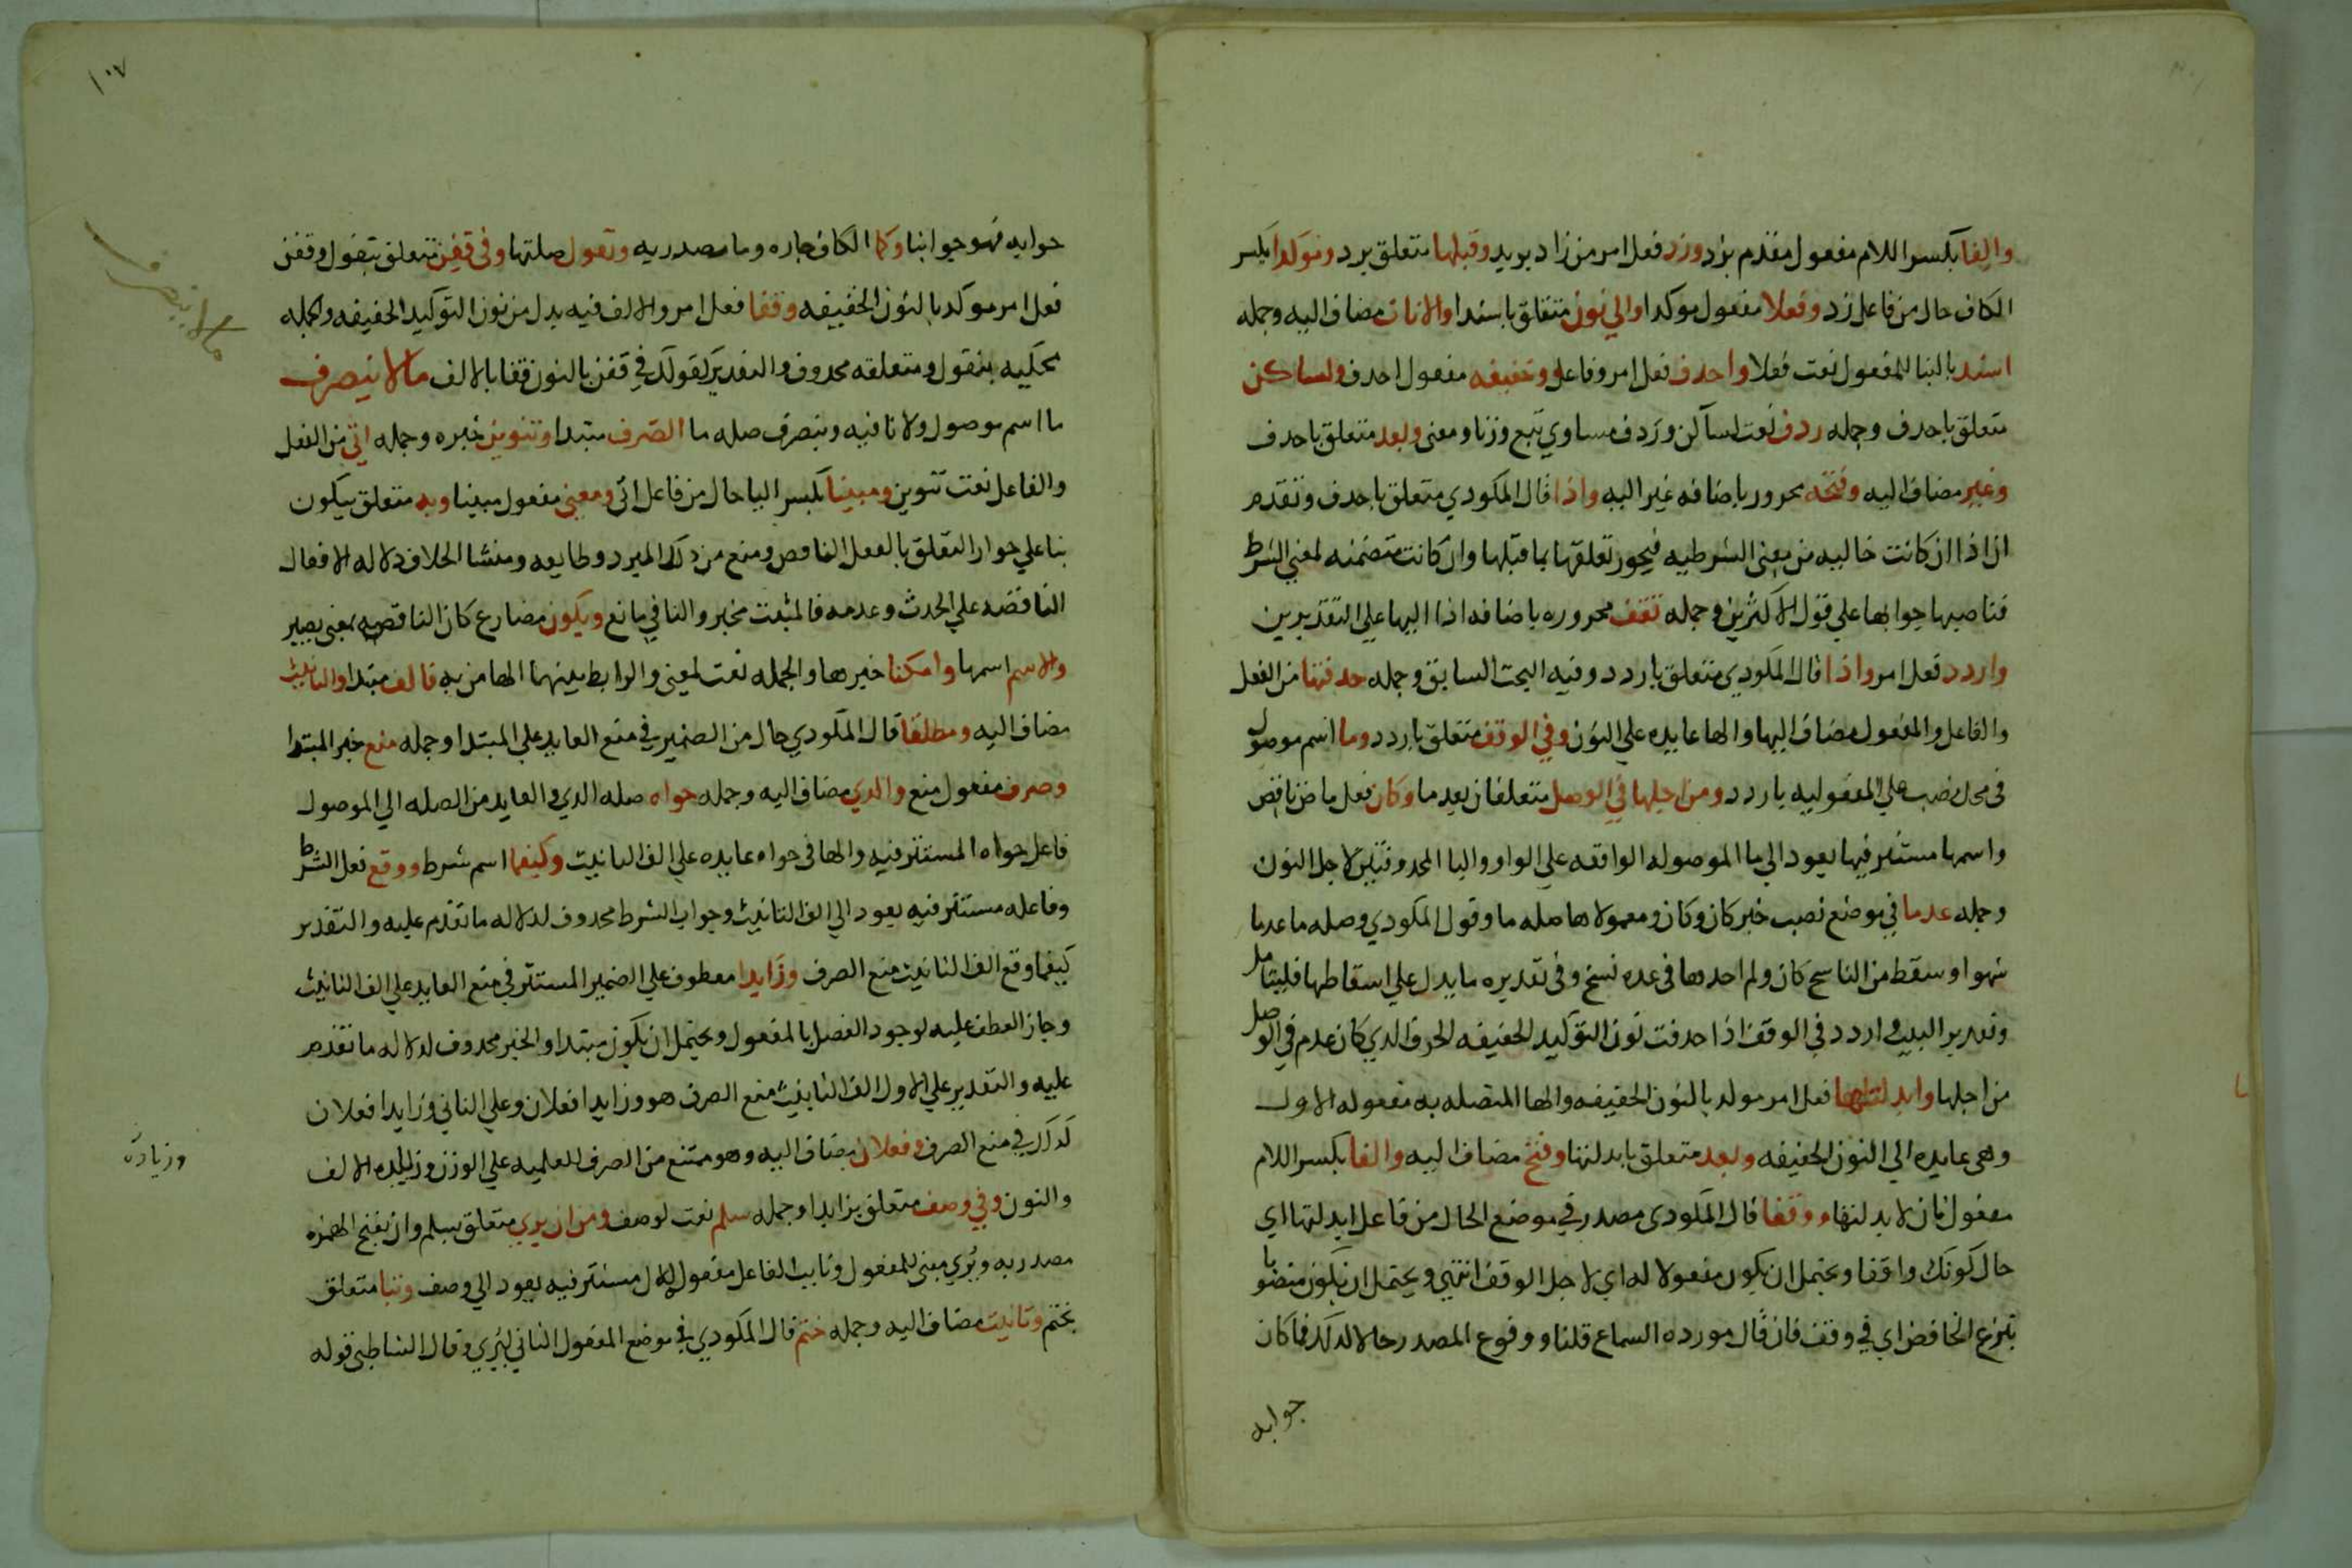 والفا بكسر اللام مفعول مقدم بزد وزد فعل امر من زاد يزيد وقبلها متعلق بزد ومؤكدا بكسر
الكاف حال من فاعل زد وفعلا مفعول موكدا والي نون متعلق باسندا والاناث مضاف اليه وجمله
اسند بالبنا للمفعول نعت فعلا واحذف فعل امر وفاعل وخفيفه مفعول احذف ولساكن
متعلق باحذف وجمله ردف نعت لساكن وردف مساوي تبع وزنا ومعنى وبعد متعلق باحذف
وغير مضاف اليه وفتحه مجرور باضافه غير اليه واذا قال المكودي متعلق باحذف وتقدم
ان اذا ان كانت خاليه من معنى الشرطيه فيجوز تعلقها بما قبلها وان كانت متضمنه لمعنى الشرط
فناصبها جوابها علي قول الاكثرين وجمله تقف مجروره باضافه اذا اليها علي التقديرين
واردد فعل امر واذا قال المكودي متعلق باردد وفيه البحث السابق وجمله حذفتها من الفعل
والفاعل والمفعول مضاف اليها والها عايده علي النون وفي الوقف متعلق باردد وما اسم موصول
في محل نصب علي المفعوليه باردد ومن اجلها في الوصل متعلقان بعدما وكان فعل ماض ناقص
واسمها مستتر فيها يعود الي ما الموصوله الواقعه علي الواو واليا المحذوفتين لاجل النون
وجمله عدما في موضع نصب خبر كان وكان ومعمولاها صله ما وقول المكودي وصله ما عدما
سهوا وسقط من الناسخ كان ولم اجدها في عده نسخ وفي تقديره ما يدل علي اسقاطها فليتامل
وتقدير البيت واردد في الوقف اذا حذفت نون التوكيد الخفيفه الحرف الذي كان عدم في الوصل
من اجلها وابدلنها فعل امر موكد بالنون الخفيفه والها المتصله به مفعوله الاول
وهي عايده الي النون الخفيفه وبعد متعلق بابدلنها وفتح مضاف اليه والفا بكسر اللام
مفعول ثان لابدلنها ووقفا قال المكودي مصدر في موضع الحال من فاعل ابدلنها اي
حال كونك واقفا ويحتمل ان يكون مفعولا له اي لاجل الوقف انتهي ويحتمل ان يكون منصوبا
بنزع الخافض اي في وقف فان قال مورده السماع قلنا ووقوع المصدر حالا كذلك فما كان
جوابه
١٠٧
جوابه فهو جوابنا وكما الكاف جاره وما مصدريه وتقول صلتها وفي قفن متعلق بتقول وقفن
فعل امر موكد بالنون الخفيفه وقفا فعل امر والالف فيه بدل من نون التوكيد الخفيفه والجمله
محكيه بتقول ومتعلقه محذوف والتقدير كقولك في قفن بالنون قفا بالالف ما لا ينصرف
ما لا ينصرف
ما اسم موصول ولا نافيه وينصرف صله ما الصرف مبتدا وتنوين خبره وجمله اتي من الفعل
والفاعل نعت تنوين ومبينا بكسر اليا حال من فاعل اتي ومعنى مفعول مبينا وبه متعلق بيكون
بنا علي جواز التعلق بالفعل الناقص ومنع من ذلك المبرد وطايفه ومنشا الخلاف دلاله الافعال
الناقصه علي الحدث وعدمه فالمثبت مخبر والنافي مانع ويكون مضارع كان الناقصه بمعنى يصير
والاسم اسمها وامكنا خبرها والجمله نعت لمعنى والرابط بينهما الها من به فالف مبتدا والتانيث
مضاف اليه ومطلقا قال المكودي حال من الضمير في منع العايد علي المبتدا وجمله منع خبر المبتدا
وصرف مفعول منع والذي مضاف اليه وجمله حواه صله الذي والعايد من الصله الي الموصول
فاعل حواه المستتر فيه والها في حواه عايده علي الف التانيث وكيفما اسم شرط ووقع فعل الشرط
وفاعله مستتر فيه يعود الي الف التانيث وجواب الشرط محذوف لدلاله ما تقدم عليه والتقدير
كيفما وقع الف التانيث منع الصرف وزايدا معطوف علي الضمير المستتر في منع العايد علي الف التانيث
وجاز العطف عليه لوجود الفصل بالمفعول ويحتمل ان يكون مبتدا والخبر محذوف لدلاله ما تقدم
عليه والتقدير علي الاول الف التانيث منع الصرف هو وزايدا فعلان وعلي الثاني وزايدا فعلان
كذلك في منع الصرف وفعلان مضاف اليه وهو ممتنع من الصرف للعلميه علي الوزن وزياده الالف
وزيادة
والنون وفي وصف متعلق بزايدا وجمله سلم نعت لوصف ومن ان يري متعلق بسلم وان بفتح الهمزه
مصدريه ويري مبني للمفعول ونايب الفاعل مفعول الاول مستتر فيه يعود الي وصف وبتا متعلق
بختم وتانيث مضاف اليه وجمله ختم قال المكودي في موضع المفعول الثاني ليري وقال الشاطبي قوله